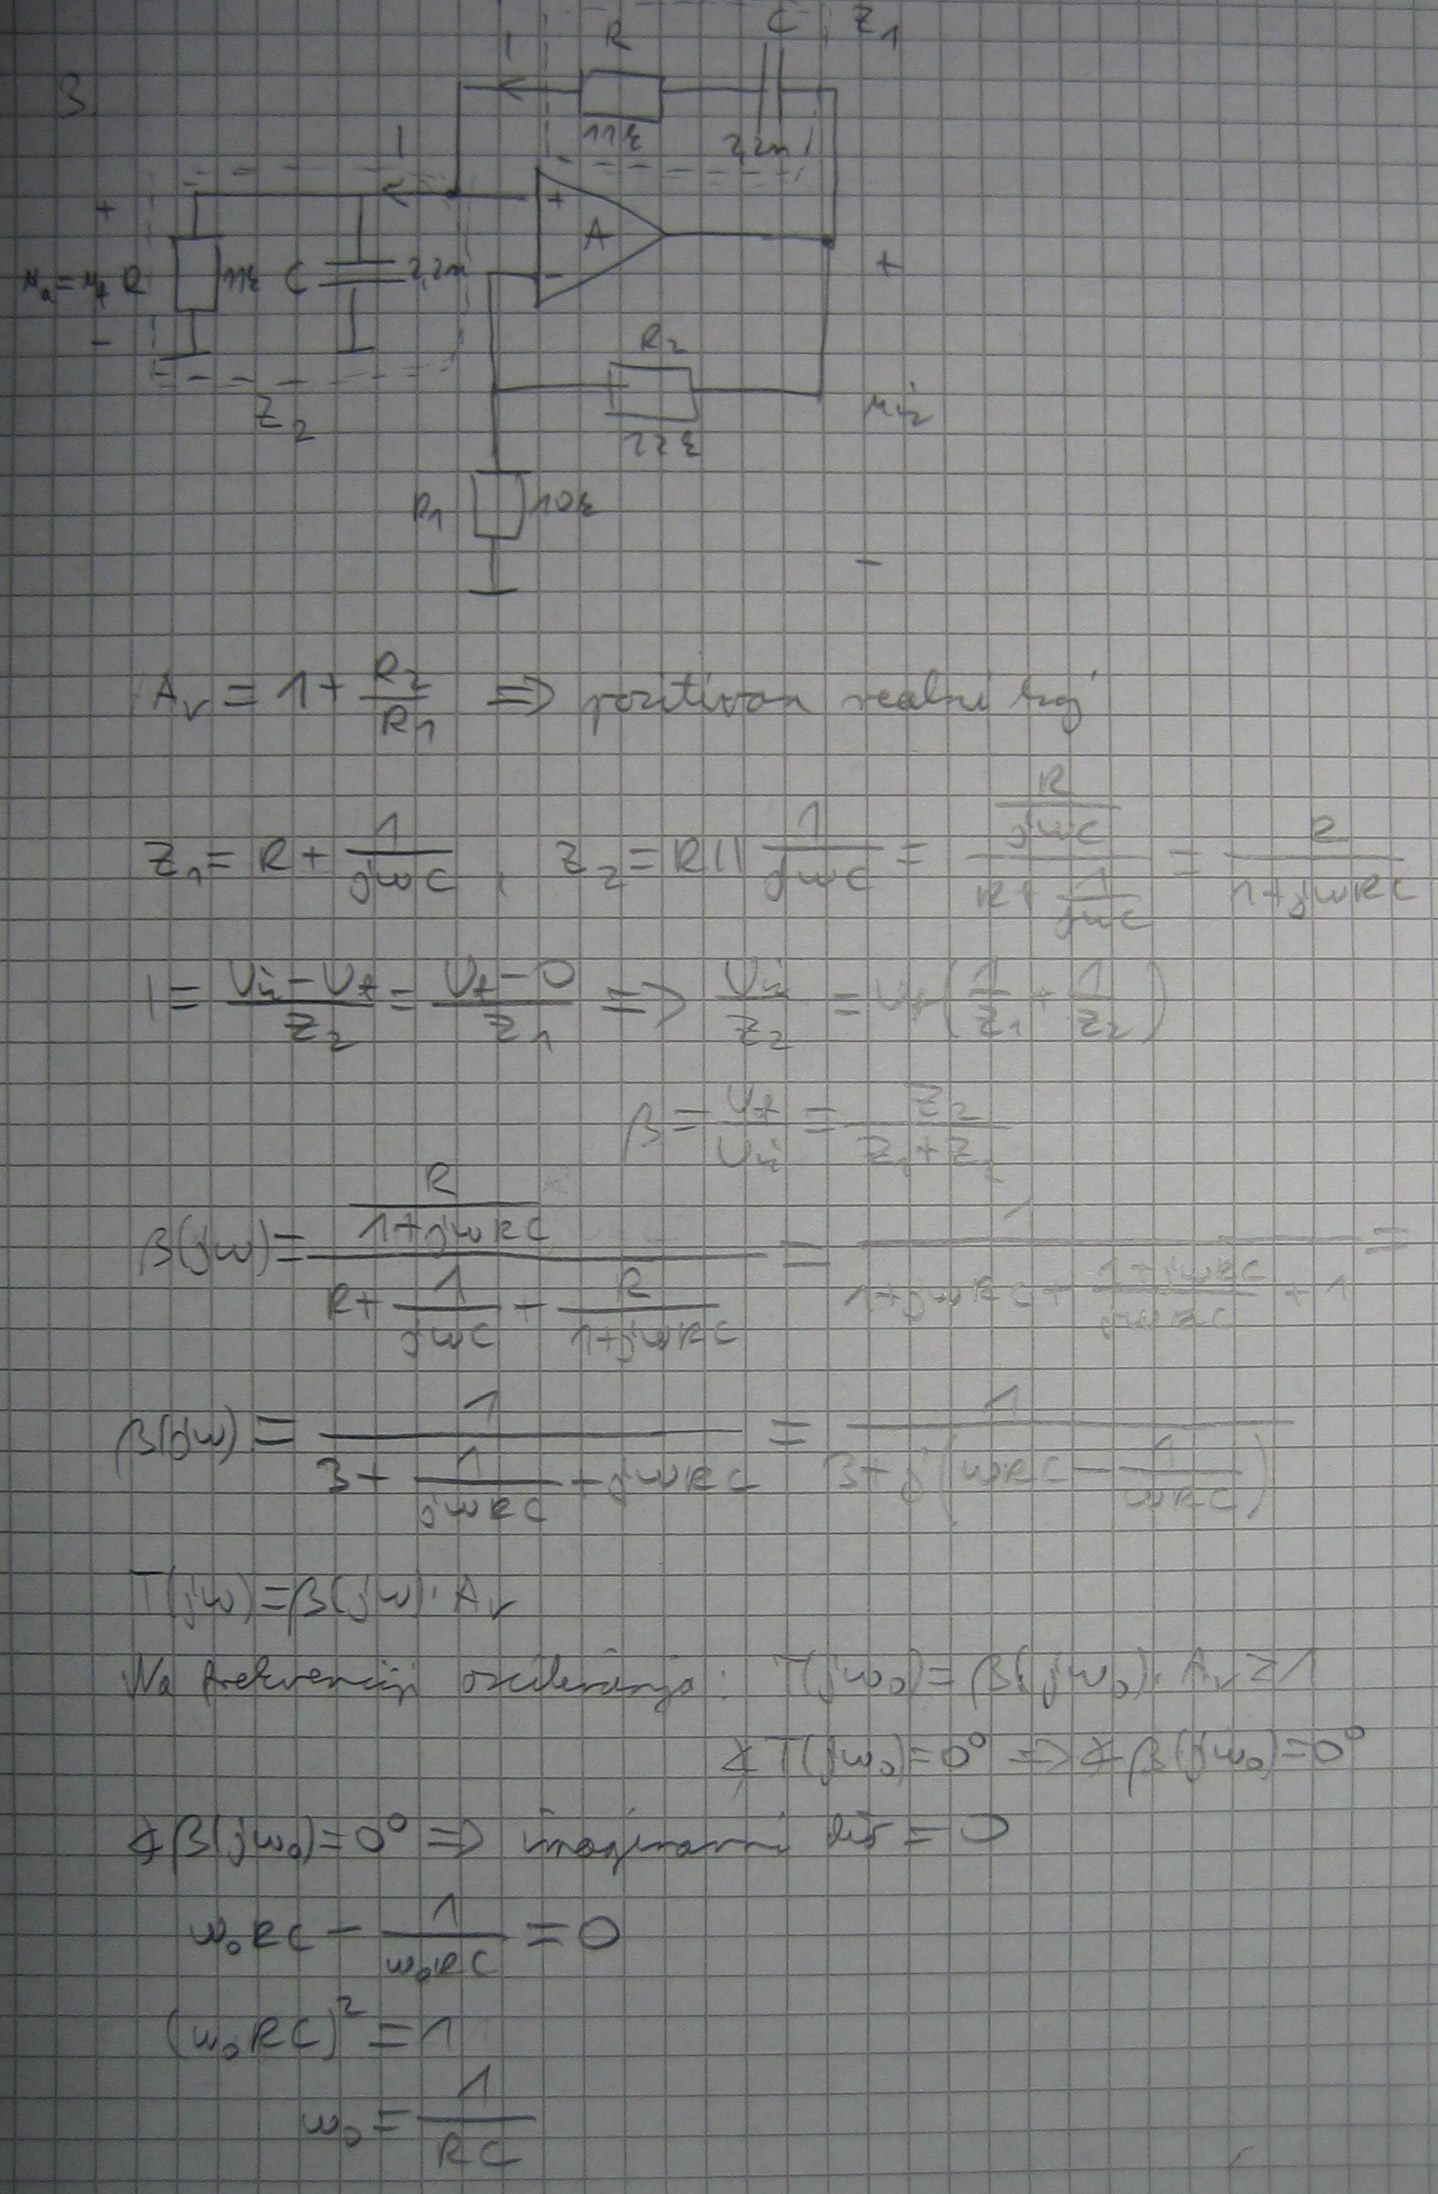 3.
I R C Z₁
11k 2,2n
I
+ + A
uₐ = u_f R 11k C 2,2n - +
- R₂
Z₂ u_iz
22k
R₁ 10k
-
A_v = 1 + R₂/R₁ ⇒ pozitivan realni broj
Z₁ = R + 1/(jωC) , Z₂ = R || 1/(jωC) = (R/(jωC))/(R + 1/(jωC)) = R/(1+jωRC)
I = (U_iz - U_f)/Z₂ = (U_f - 0)/Z₁ ⇒ U_iz/Z₂ = U_f (1/Z₁ + 1/Z₂)
β = U_f/U_iz = Z₂/(Z₁ + Z₂)
β(jω) = (R/(1+jωRC))/(R + 1/(jωC) + R/(1+jωRC)) = 1/(1+jωRC + (1+jωRC)/(jωRC) + 1) =
β(jω) = 1/(3 + 1/(jωRC) + jωRC) = 1/(3 + j(ωRC - 1/(ωRC)))
T(jω) = β(jω) · A_v
Na frekvenciji osciliranja: T(jω₀) = β(jω₀) · A_v ≥ 1
∡T(jω₀) = 0° ⇒ ∡β(jω₀) = 0°
∡β(jω₀) = 0° ⇒ imaginarni dio = 0
ω₀RC - 1/(ω₀RC) = 0
(ω₀RC)² = 1
ω₀ = 1/(RC)